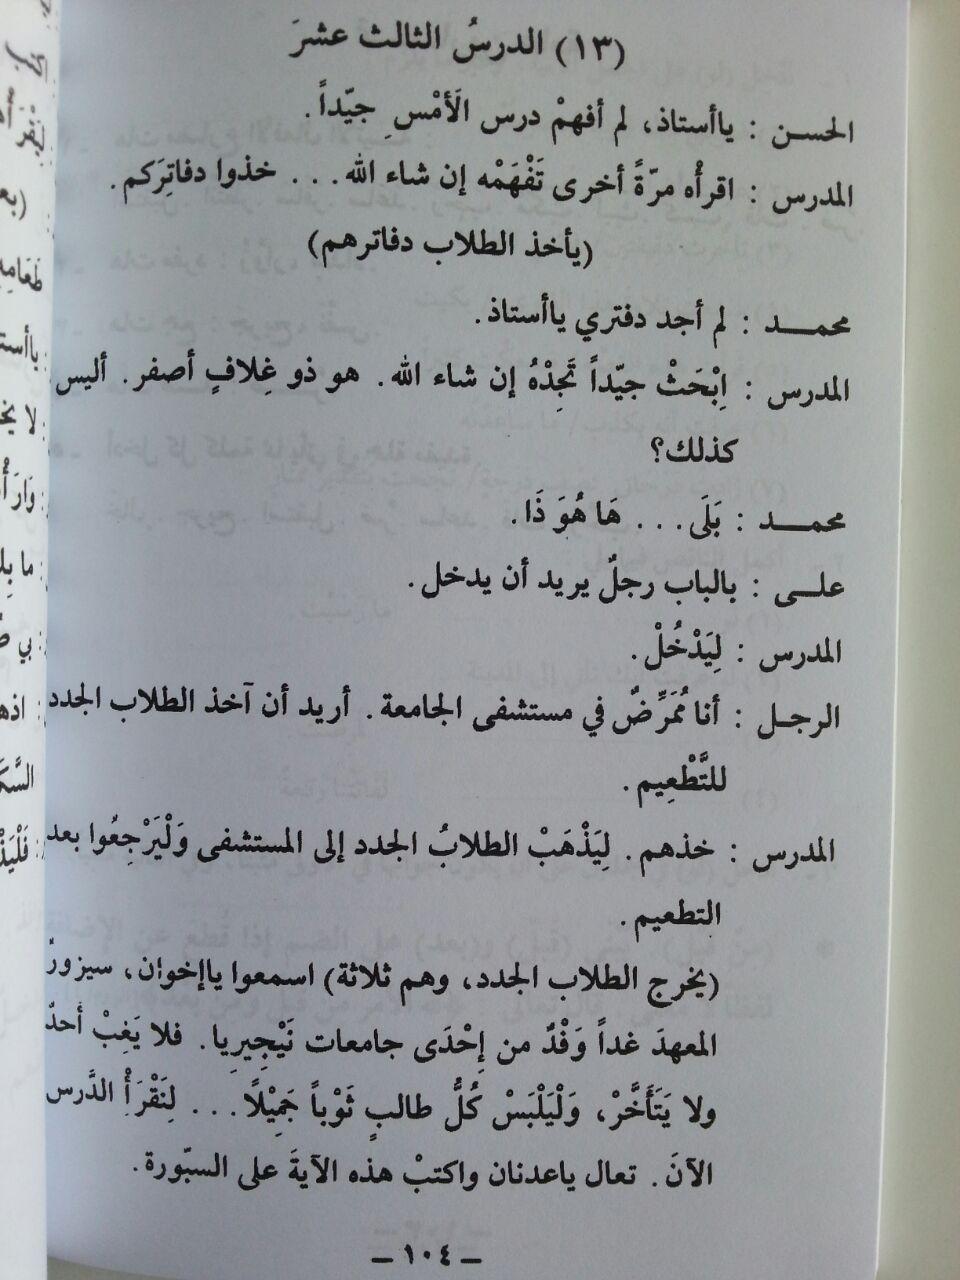 (١٣) الدرسُ الثالث عشرَ
الحسن : ياأستاذ، لم أفهمْ درس الَأمْسِ جيّداً.
المدرس : اقرأْه مرّةً أخرى تَفْهَمْه إن شاء الله... خذوا دفاتِرَكم.
(يأخذ الطلاب دفاترهم)
محمـــد : لم أجد دفتري ياأستاذ.
المدرس : اِبْحَثْ جيّداً تَجِدْهُ إن شاء الله. هو ذو غِلافٍ أصفر. أليس
كذلك؟
محمـــد : بَلَى... هَا هُوَ ذَا.
علــى : بالباب رجلٌ يريد أن يدخل.
المدرس : لِيَدْخُلْ.
الرجـل : أنا مُمَرِّضٌ في مستشفى الجامعة. أريد أن آخذ الطلاب الجدد
للتَّطْعِيم.
المدرس : خذهم. لِيَذْهَبْ الطلابُ الجدد إلى المستشفى وَلْيَرْجِعُوا بعد
التطعيم.
(يخرج الطلاب الجدد، وهم ثلاثة) اسمعوا ياإخوان، سيزورُ
المعهدَ غداً وَفْدٌ من إِحْدَى جامعات نَيْجِيريا. فلا يَغِبْ أحدٌ
ولا يَتَأَخَّرْ، وَلْيَلْبَسْ كُلُّ طالبٍ ثَوْباً جَمِيْلًا... لِنَقْرَأْ الدَّرس
الآنَ. تعال ياعدنان واكتبْ هذه الآيةَ على السبّورة.
ــ ١٠٤ ــ